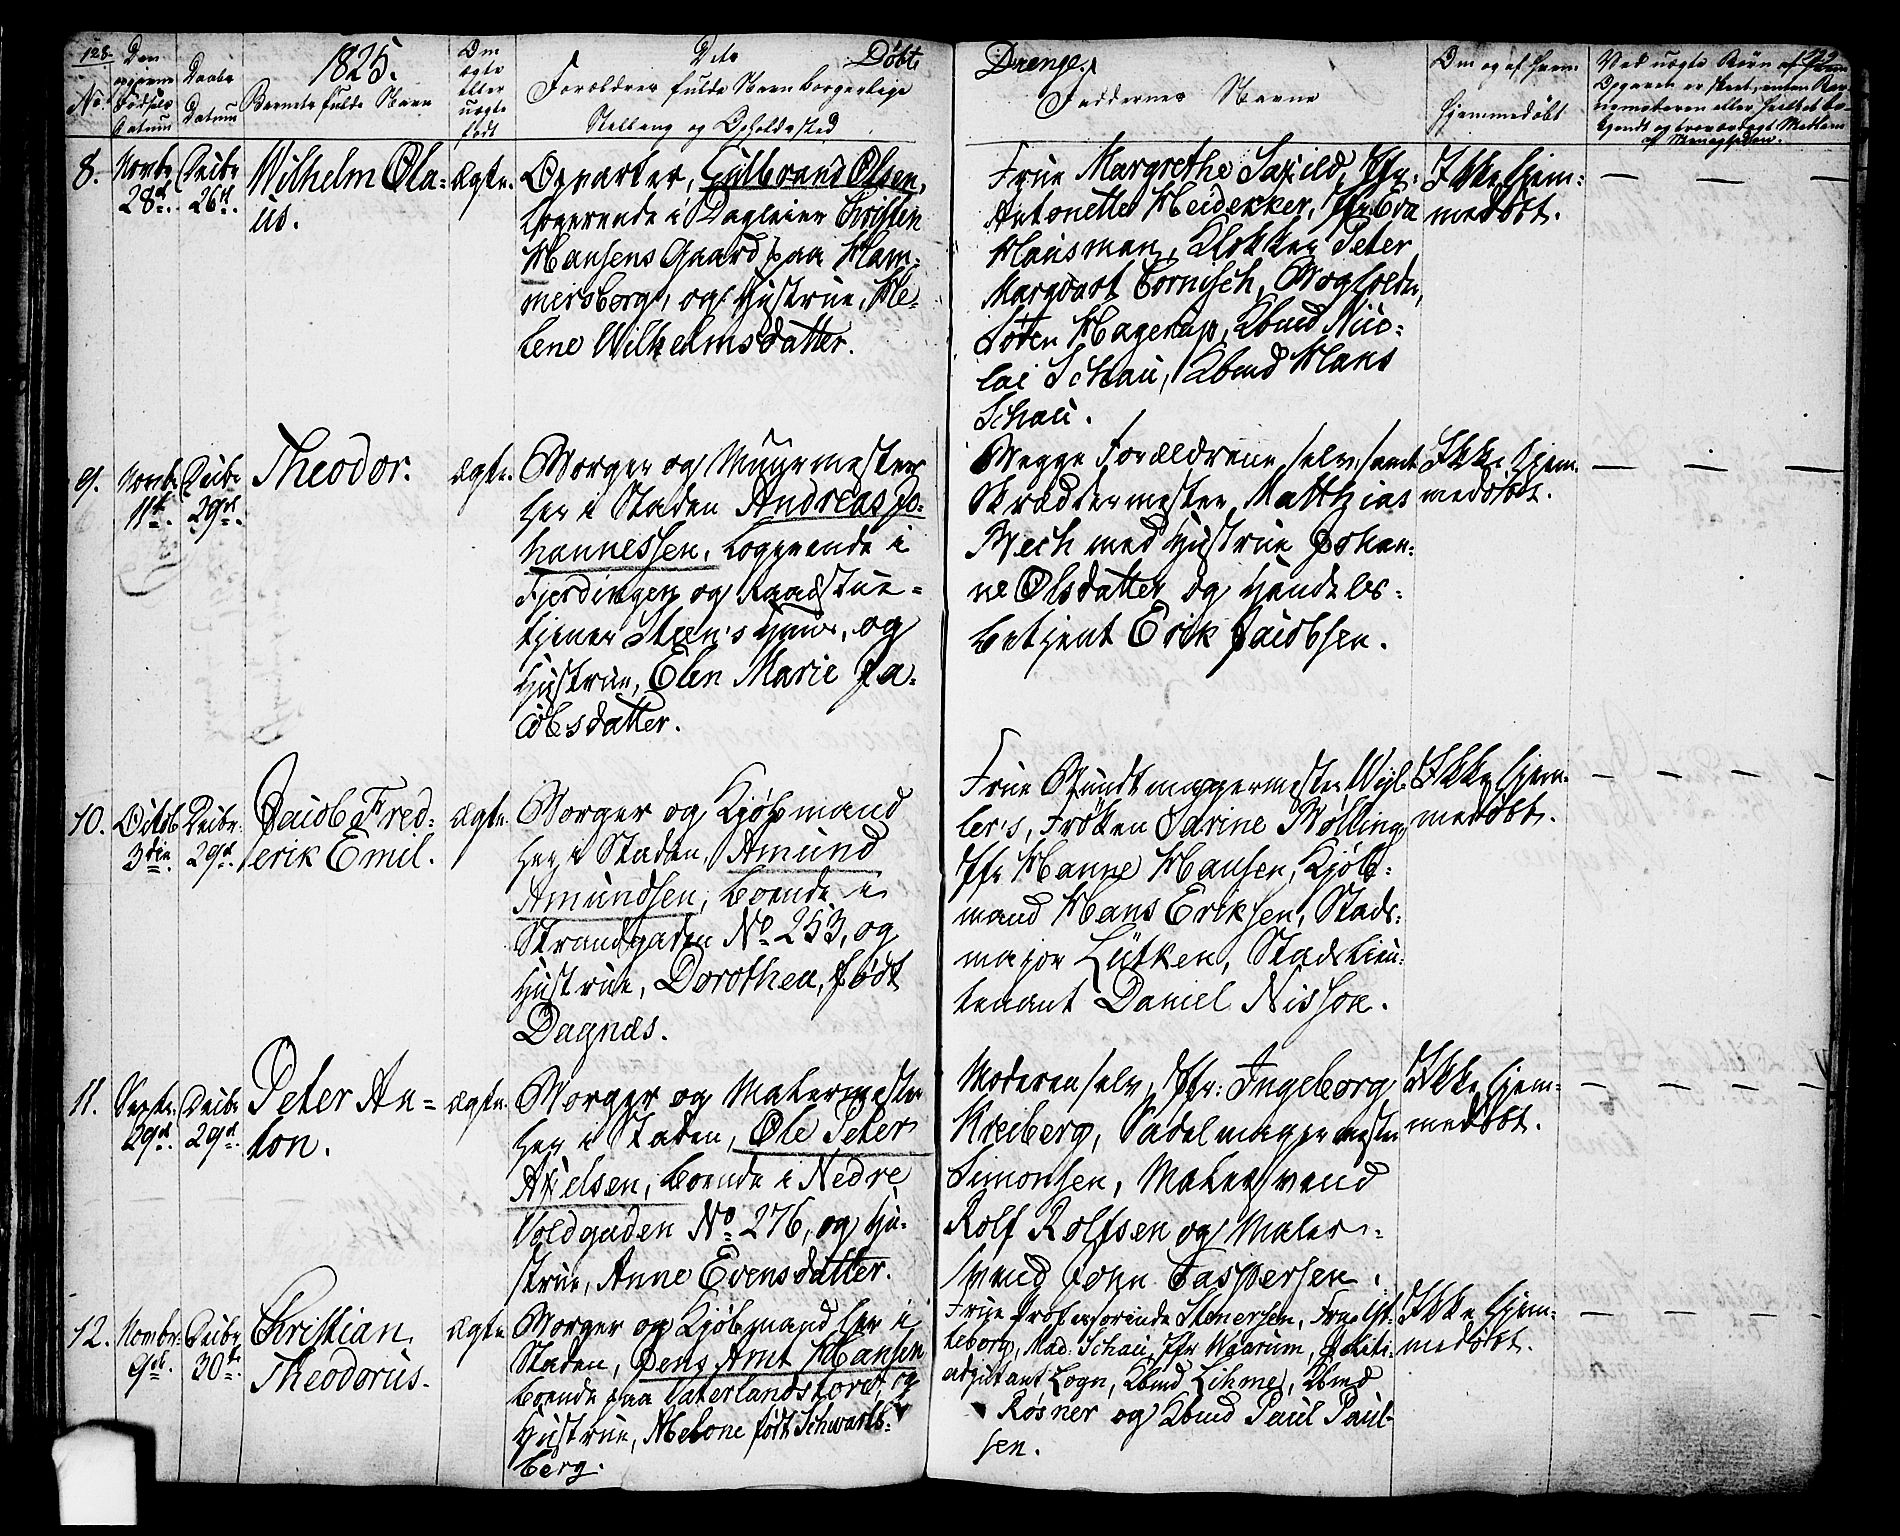 128. 1825. Døbte Drenge.
No. Den opgivne Fødsels Datum
Daabs Datum
Barnets fulde Navn
Om ægte eller uægte født
Dets Forældres fulde Navn borgerlige
Stilling og Opholdssted
Faddernes Navne
Om og af hvem hjemmedøbt
8. Novbr 28de. Decbr 26de.
Wilhelm Ola=
us.
ægte.
Opvarter, Gulbrand Olsen,
logerende i Dagleier Christen
Hansens Gaard paa Ham=
mersborg, og Hustrue, He=
lene Wilhelmsdatter.
Frue Margrethe Saxild, Jfr.
Antonette Heidekker, Jfr Eva
Hausman, Klokker Peter
Margvart Cornisch,
Søren Hagerup, Kbmd Nico=
lai Schau, Kbmd Hans
Schau.
Ikke hjem=
medøbt.
9. Novbr 11te. Decbr 29de.
Theodor.
ægte.
Borger og Muurmester
her i Staden Andreas Jo=
hannessen, logerende i
Fjerdingen og Raadstue=
tjener Steen's Huus, og
Hustrue, Elen Marie Ja=
cobsdatter.
Begge Forældrene selv, samt
Skrædermester Matthias
Bech med Hustrue Johan=
ne Olsdatter og Handels=
betjent Erik Jacobsen.
Ikke hjem=
medøbt.
10. Octob. 3die. Decbr. 29de.
Jacob Fred=
erik Emil.
ægte.
Borger og Kjøbmand
her i Staden, Amund
Amundsen, boende i
Strandgaden No. 253, og
Hustrue, Dorothea, født
Dagnæs.
Frue Bundtmagermester
ler's, Frøken Sarine Mølling,
Jfr Hanne Hansen, Kjøb=
mand Hans Eriksen, Stads=
major Lütken, Stadslieu=
tenant Daniel Nisson.
Ikke hjem=
medøbt.
11. Septbr. 29de. Decbr 29de.
Peter An=
ton.
ægte.
Borger og Malermester
her i Staden, Ole Peter
Axelsen, boende i Nedre
Voldgaden No. 276, og Hu=
strue, Anne Evensdatter.
Moderen selv, Jfr: Ingeborg
Kreiberg, Sadelmagermester
Simonsen, Malersvend
Rolf Rolfsen og Maler=
svend John Caspersen.
Ikke hjem=
medøbt.
12. Novbr. 9de. Decbr 30te.
Christian
Theodorus.
ægte
Borger og Kjøbmand her i
Staden, Jens Arnt Hansen
boende paa Vaterlandstorv, og
Hustrue, Malone født Schwartz=
berg.
Frue Professorinde Stenersen,
Mad. Schau, Jfr Waarum, Politi=
adjutant Logn, Kbmd Lihme, Kbmd
Røsner og Kbmd Paul Paul=
sen.
Ikke hjem=
medøbt.